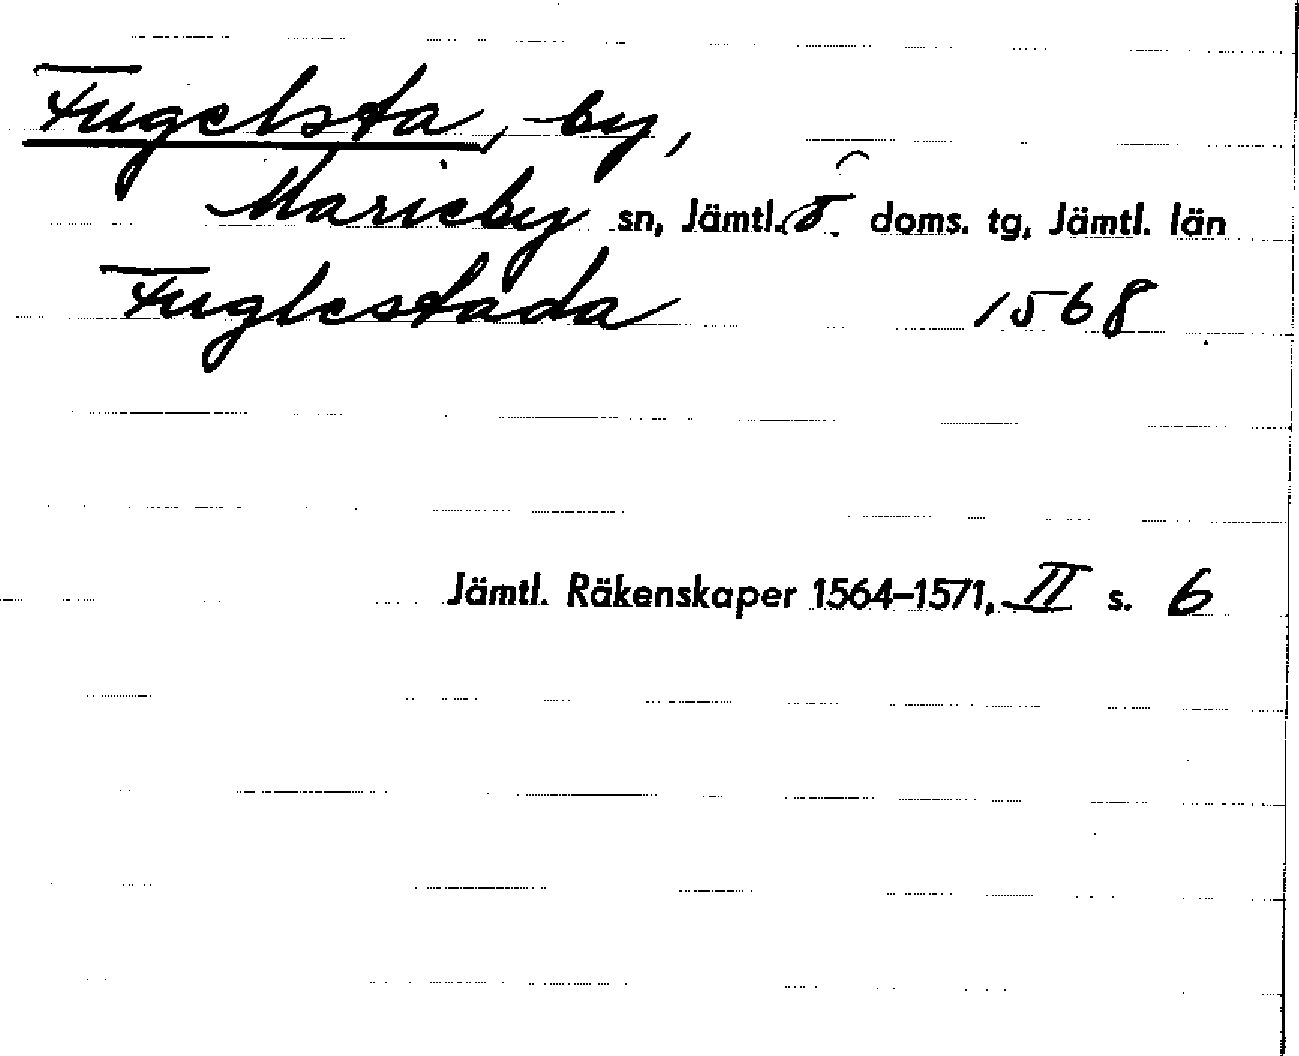 Fugelsta, by,
Marieby sn, Jämtl. ö doms. tg, Jämtl. län
Fuglestada 1568
Jämtl. Räkenskaper 1564–1571, II s. 6